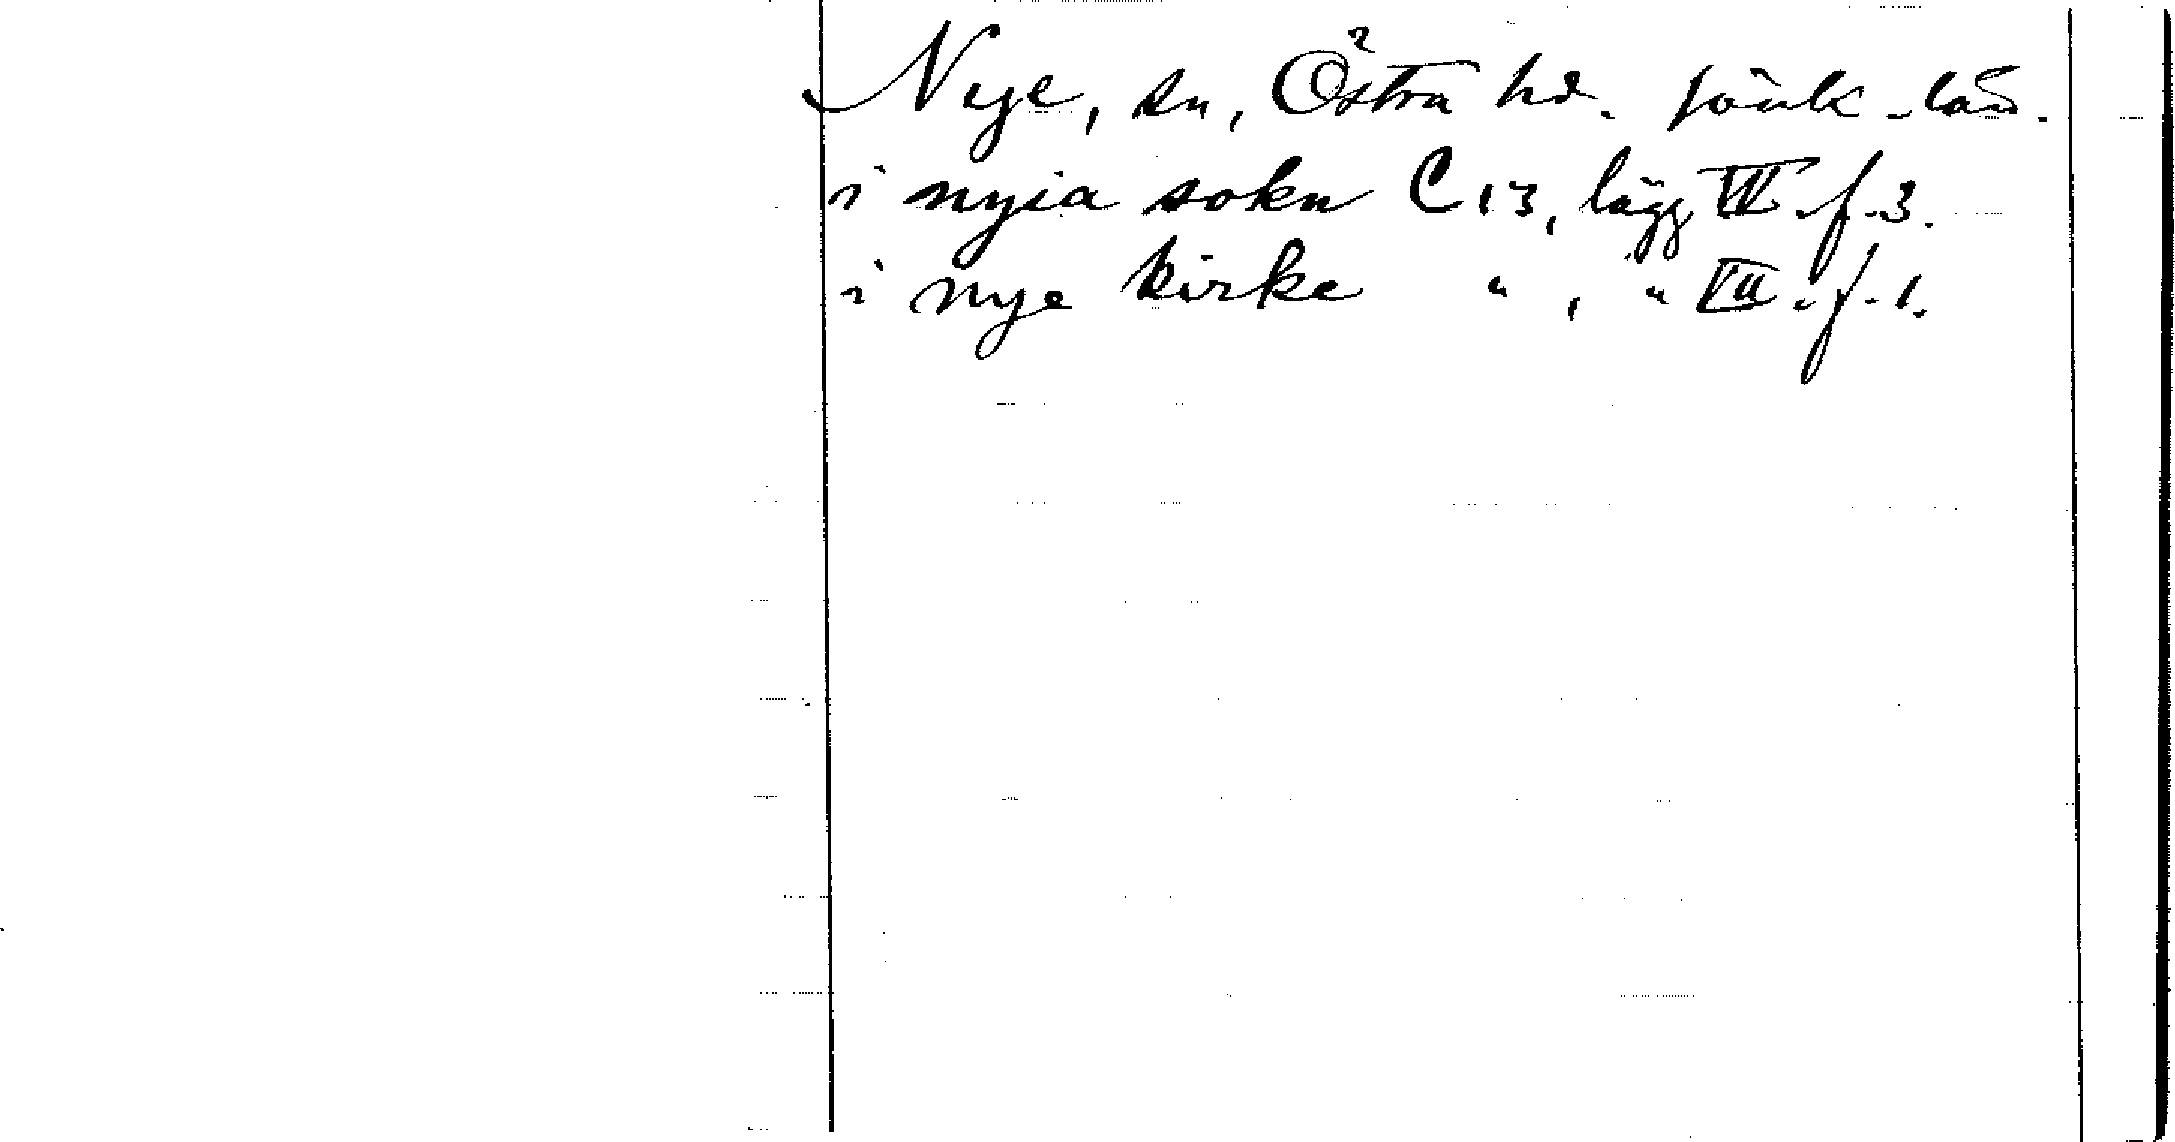 Nye, sn, Östra hd. Jönk. län.
i nyia sokn C 13, lägg VII. f. 3.
i nye kirke " , " VII. f. 1.